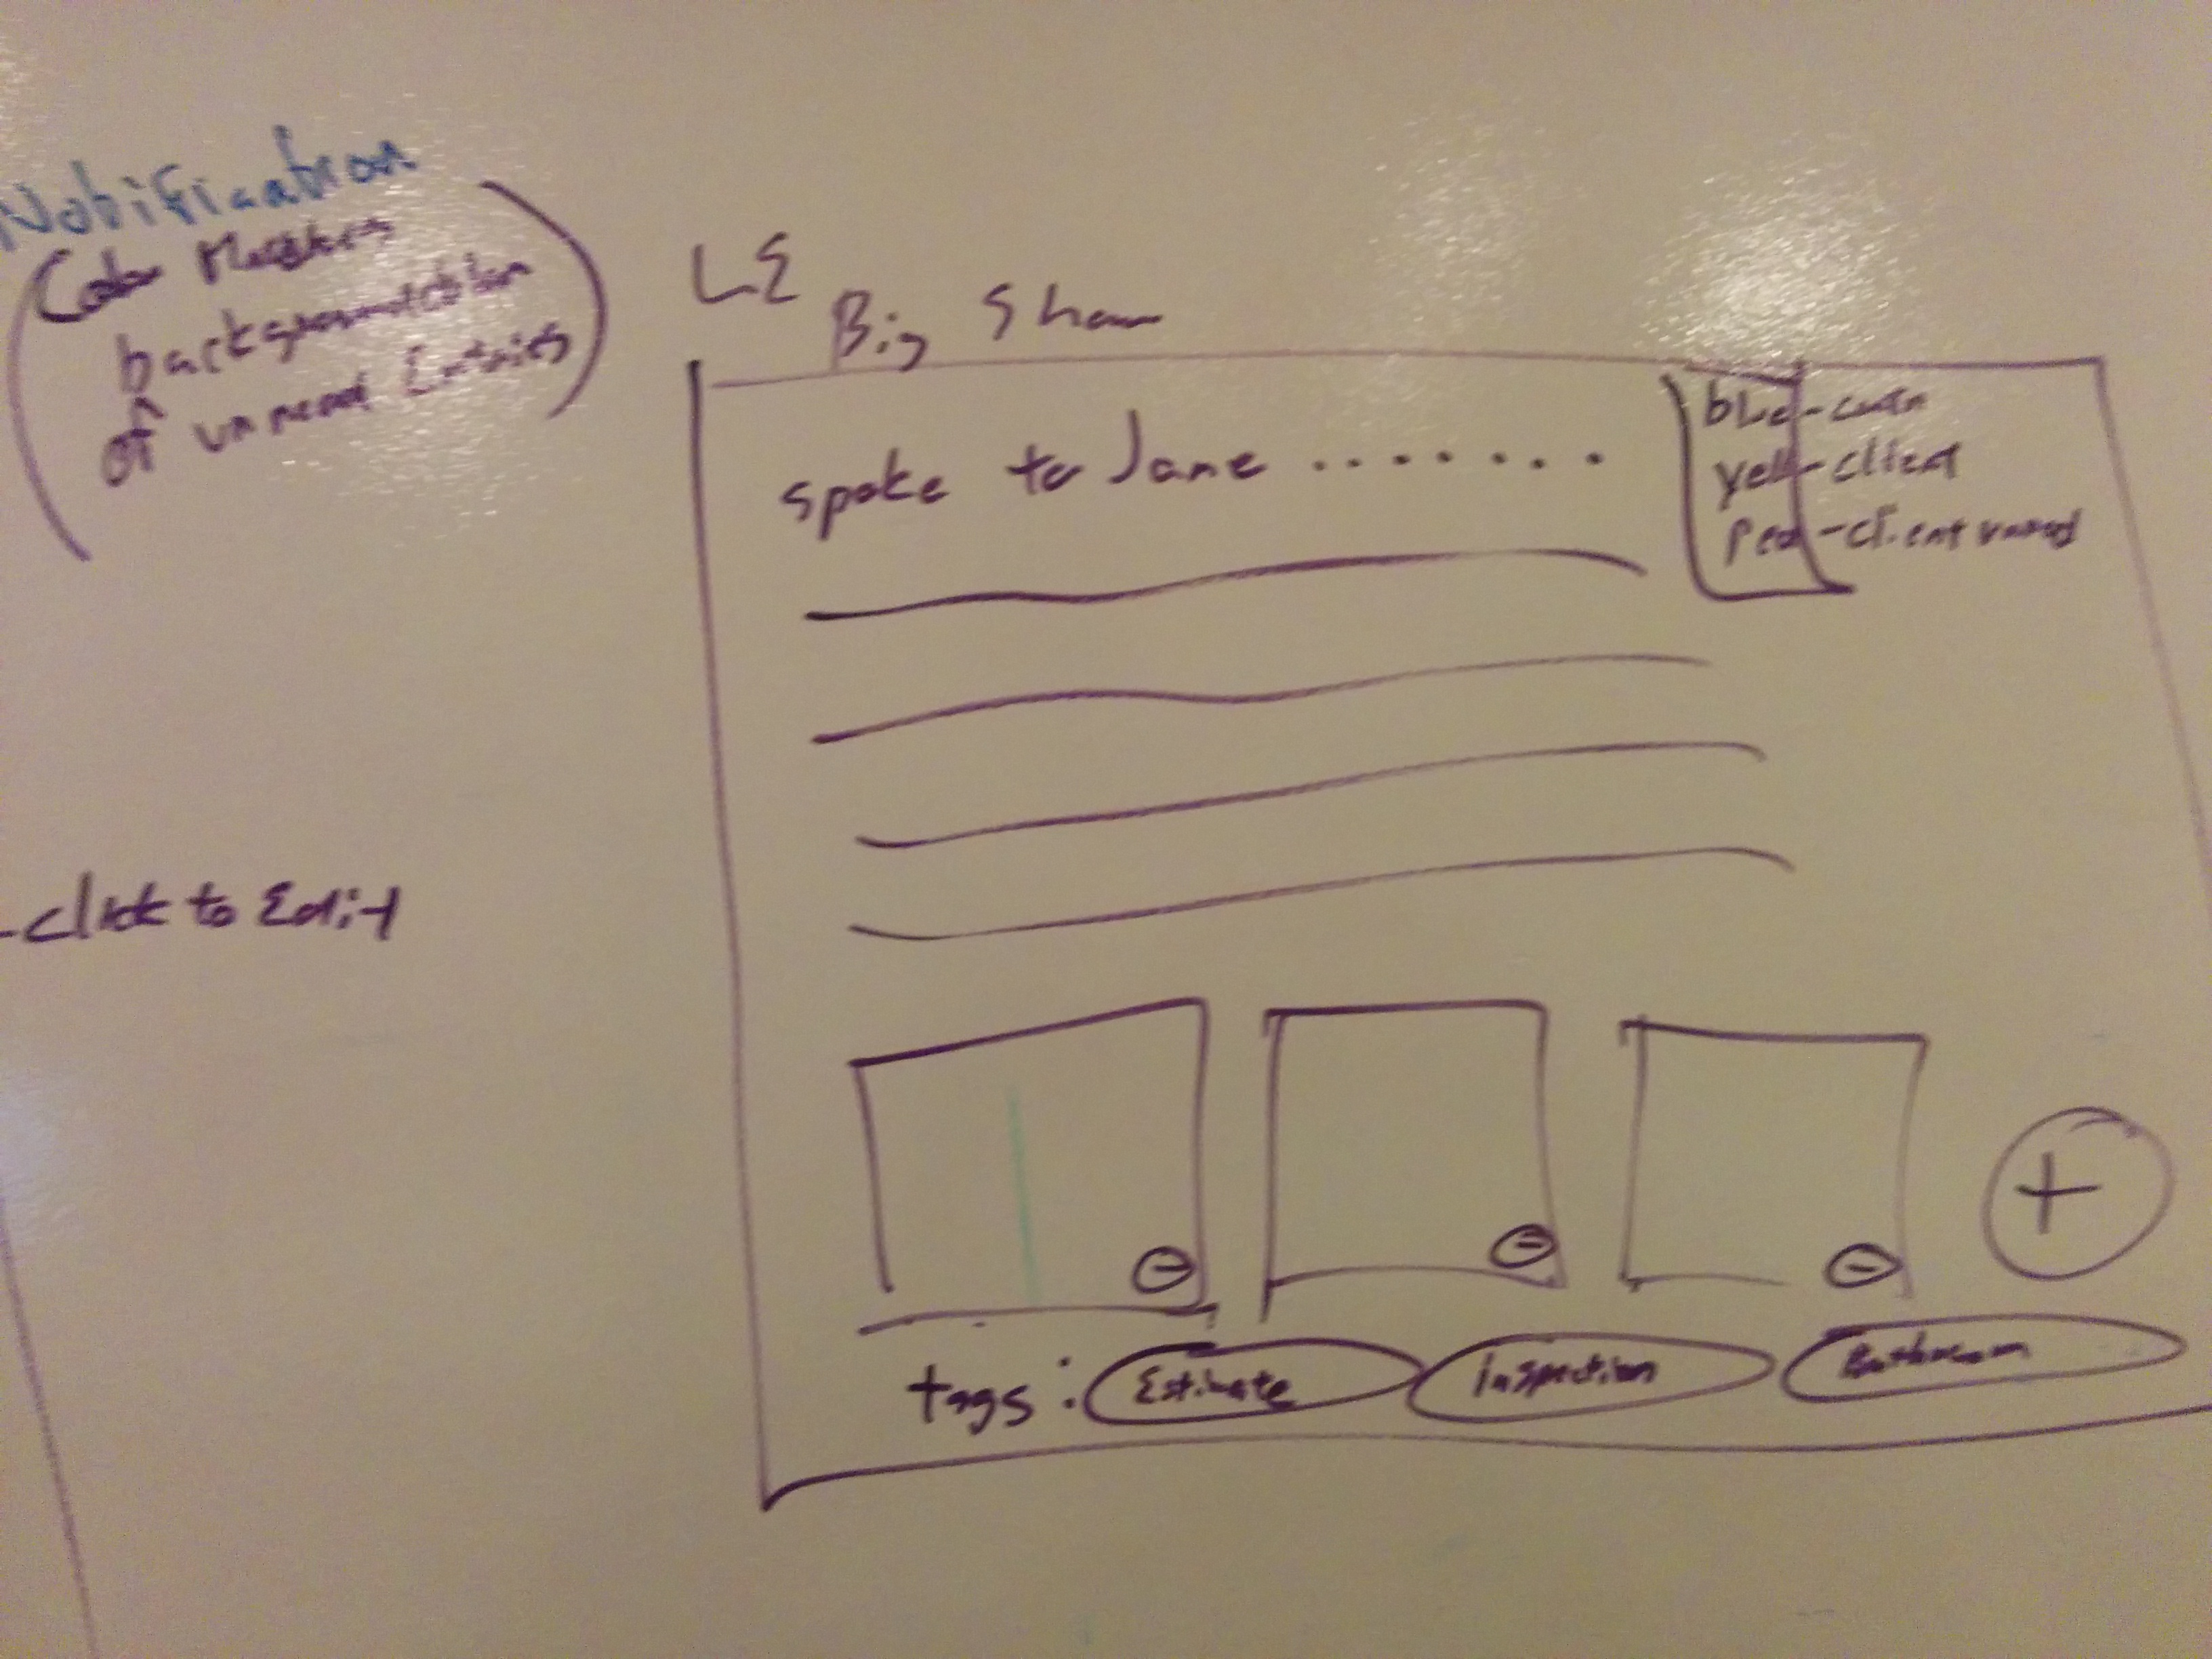 Notification
(Color Matches
background color
of unread Entries)
LE
Big Show
spoke to Jane ........
blu-
yel-client
Red-client
-click to Edit
+
tags: Estimate Inspection Bathroom